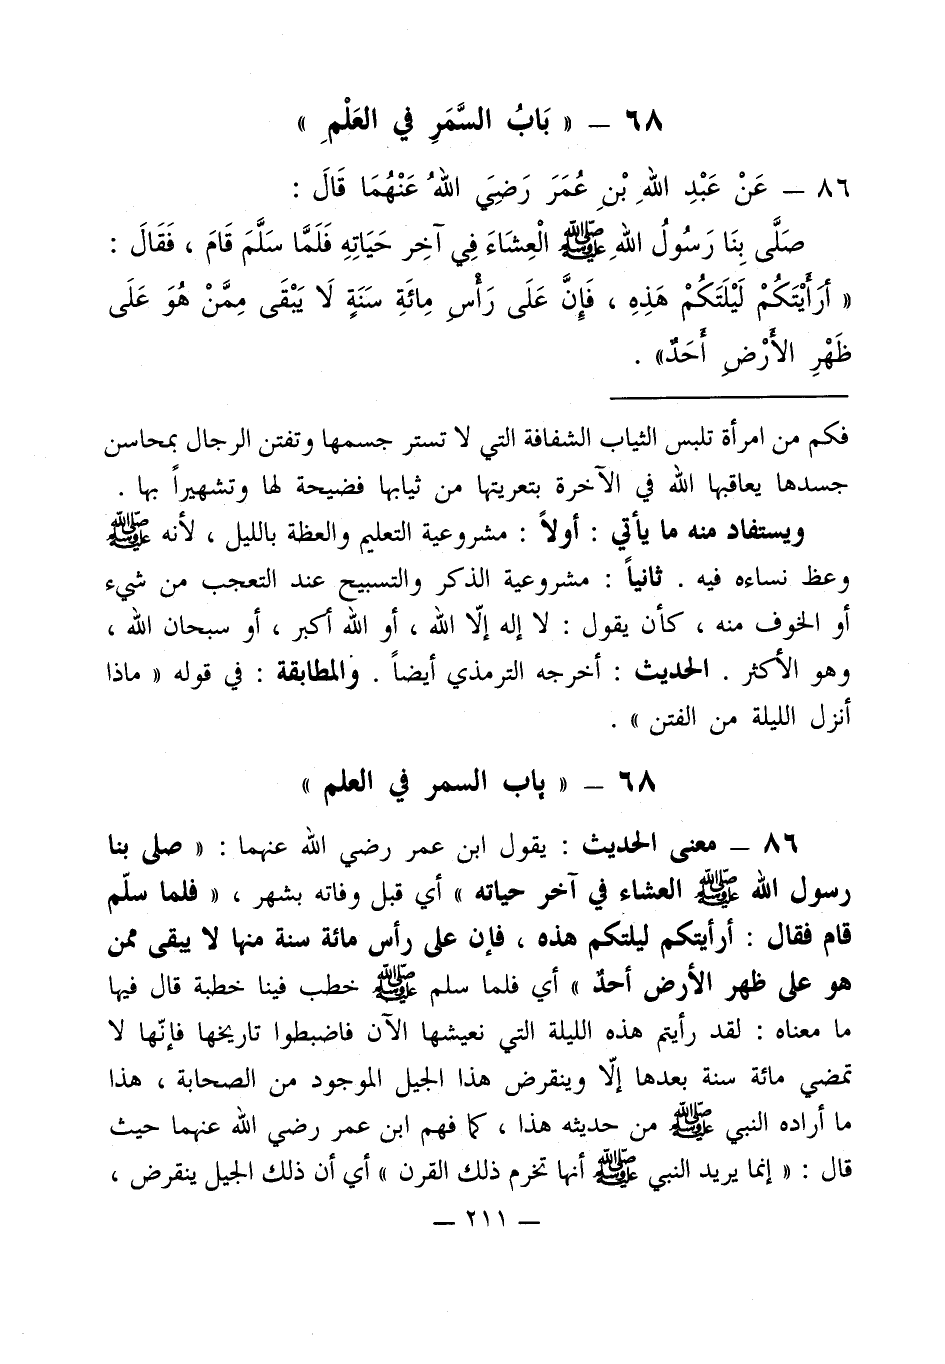 ٦٨ – « بَابُ السَّمَرِ في العَلْمِ »
٨٦ – عَنْ عَبْدِ اللهِ بْنِ عُمَرَ رَضِيَ اللهُ عَنْهُمَا قَالَ :
صَلَّى بِنَا رَسُولُ اللهِ ﷺ الْعِشَاءَ فِي آخِرِ حَيَاتِهِ فَلَمَّا سَلَّمَ قَامَ ، فَقَالَ :
« أَرَأَيْتَكُمْ لَيْلَتَكُمْ هَذِهِ ، فَإِنَّ عَلَى رَأْسِ مِائَةِ سَنَةٍ لَا يَبْقَى مِمَّنْ هُوَ عَلَى
ظَهْرِ الأَرْضِ أَحَدٌ» .
فكم من امرأة تلبس الثياب الشفافة التي لا تستر جسمها وتفتن الرجال بمحاسن
جسدها يعاقبها الله في الآخرة بتعريتها من ثيابها فضيحة لها وتشهيراً بها .
ويستفاد منه ما يأتي : أولاً : مشروعية التعليم والعظة بالليل ، لأنه ﷺ
وعظ نساءه فيه . ثانياً : مشروعية الذكر والتسبيح عند التعجب من شيء
أو الخوف منه ، كأن يقول : لا إله إلّا الله ، أو الله أكبر ، أو سبحان الله ،
وهو الأكثر . الحديث : أخرجه الترمذي أيضاً . والمطابقة : في قوله « ماذا
أنزل الليلة من الفتن » .
٦٨ – « باب السمر في العلم »
٨٦ – معنى الحديث : يقول ابن عمر رضي الله عنهما : « صلى بنا
رسول الله ﷺ العشاء في آخر حياته » أي قبل وفاته بشهر ، « فلما سلّم
قام فقال : أرأيتكم ليلتكم هذه ، فإن على رأس مائة سنة منها لا يبقى ممن
هو على ظهر الأرض أحدٌ » أي فلما سلم ﷺ خطب فينا خطبة قال فيها
ما معناه : لقد رأيتم هذه الليلة التي نعيشها الآن فاضبطوا تاريخها فإنّها لا
تمضي مائة سنة بعدها إلّا وينقرض هذا الجيل الموجود من الصحابة ، هذا
ما أراده النبي ﷺ من حديثه هذا ، كما فهم ابن عمر رضي الله عنهما حيث
قال : « إنما يريد النبي ﷺ أنها تخرم ذلك القرن » أي أن ذلك الجيل ينقرض ،
– ٢١١ –